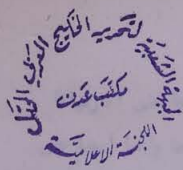 الجبهة الشعبية
لتحرير الخليج العربي المحتل
مكتب عدن
اللجنة الاعلامية